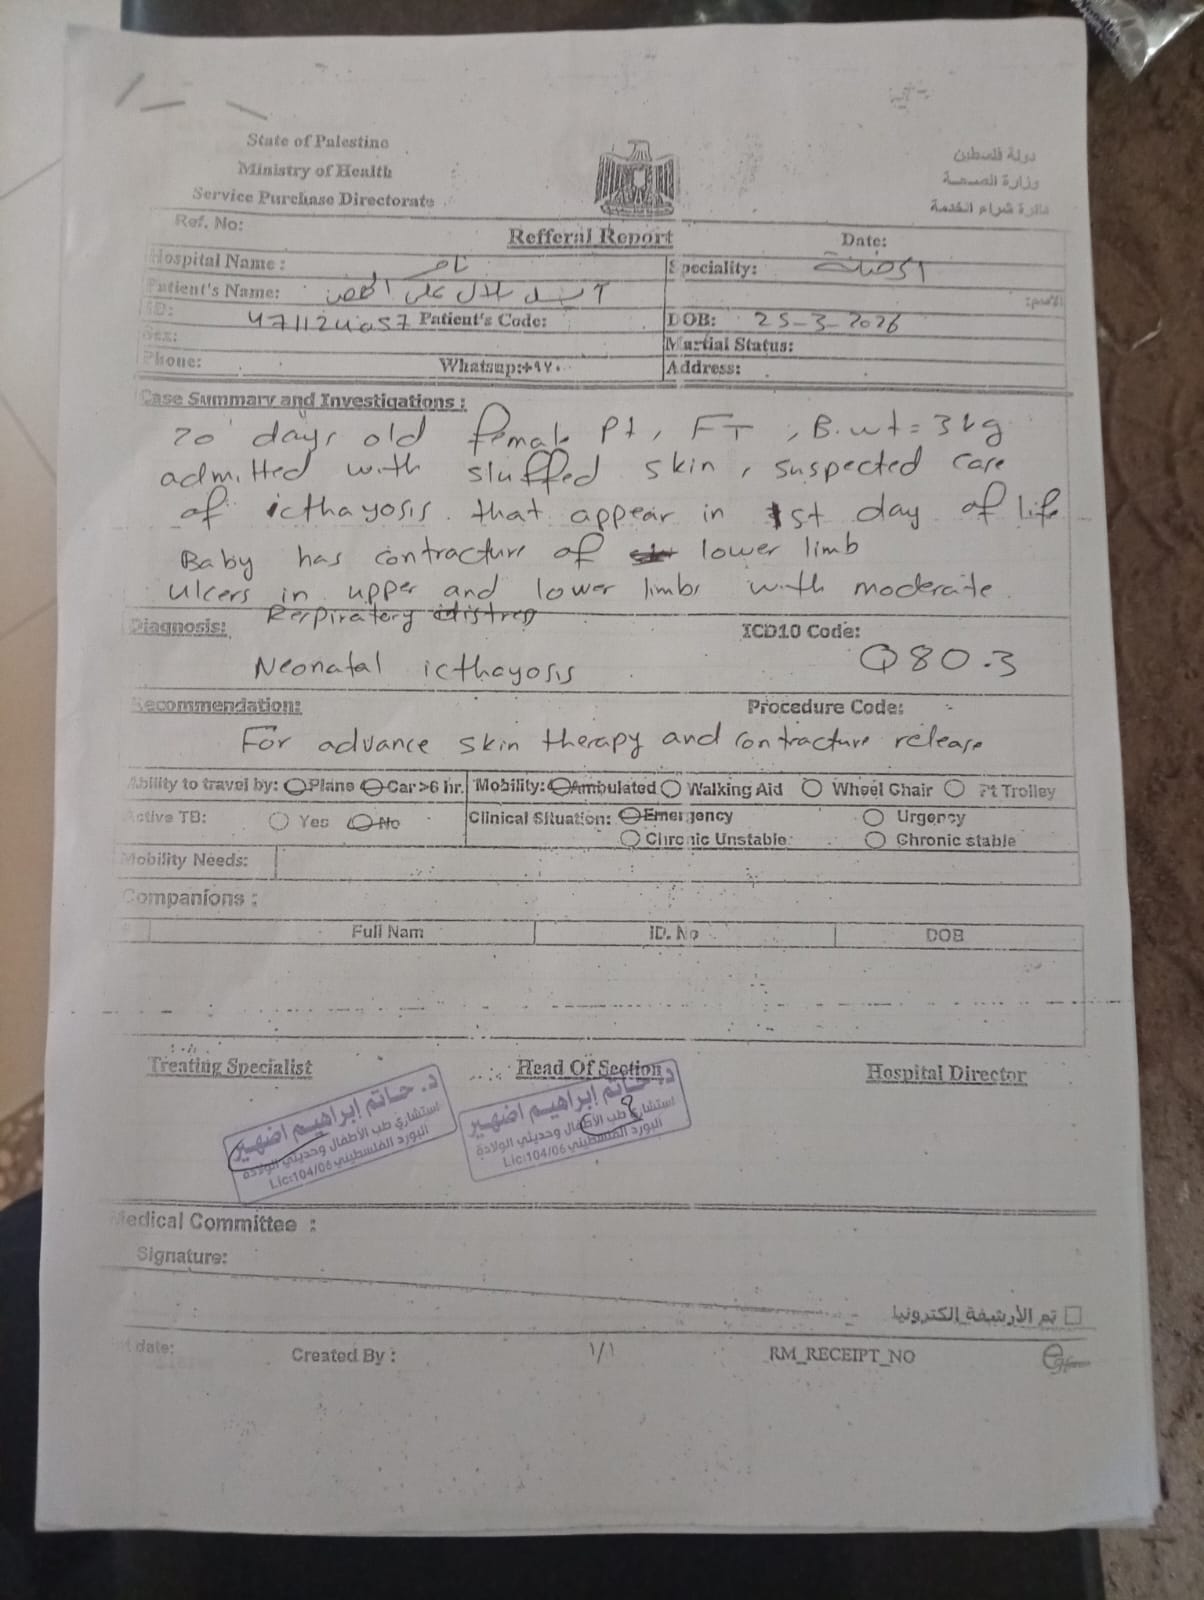 State of Palestine
Ministry of Health
Service Purchase Directorate
دولة فلسطين
وزارة الصحة
دائرة شراء الخدمة
Ref. No:
Refferal Report
Date:
Hospital Name :
Speciality:
Patient's Name:
بلال على
الاسم:
ID:
Patient's Code:
DOB: 25-3-2026
Sex:
Martial Status:
Phone:
Whatsup:+٩٧٠
Address:
Case Summary and Investigations :
20 days old female Pt, FT, B.wt = 3kg
admitted with sluffed skin, suspected case
of icthayosis that appear in 1st day of life
Baby has contracture of lower limb
ulcers in upper and lower limbs with moderate
Respiratory distress
Diagnosis:
ICD10 Code:
Neonatal icthayosis
Q80.3
Recommendation:
Procedure Code:
For advance skin therapy and contracture release
Ability to travel by: Plane Car>6 hr. Mobility: Ambulated Walking Aid Wheel Chair Pt Trolley
Active TB: Yes No Clinical Situation: Emergency Urgency
Chronic Unstable Chronic stable
Mobility Needs:
Companions :
# Full Nam ID. No DOB
Treating Specialist
Head Of Section
Hospital Director
د. حاتم إبراهيم اضهير
استشاري طب الأطفال وحديثي الولادة
البورد الفلسطيني
Lic:104/06
د. حاتم إبراهيم اضهير
استشاري طب الأطفال وحديثي الولادة
البورد الفلسطيني
Lic:104/06
Medical Committee :
Signature:
تم الأرشفة إلكترونيا
date:
Created By :
١/١
RM_RECEIPT_NO